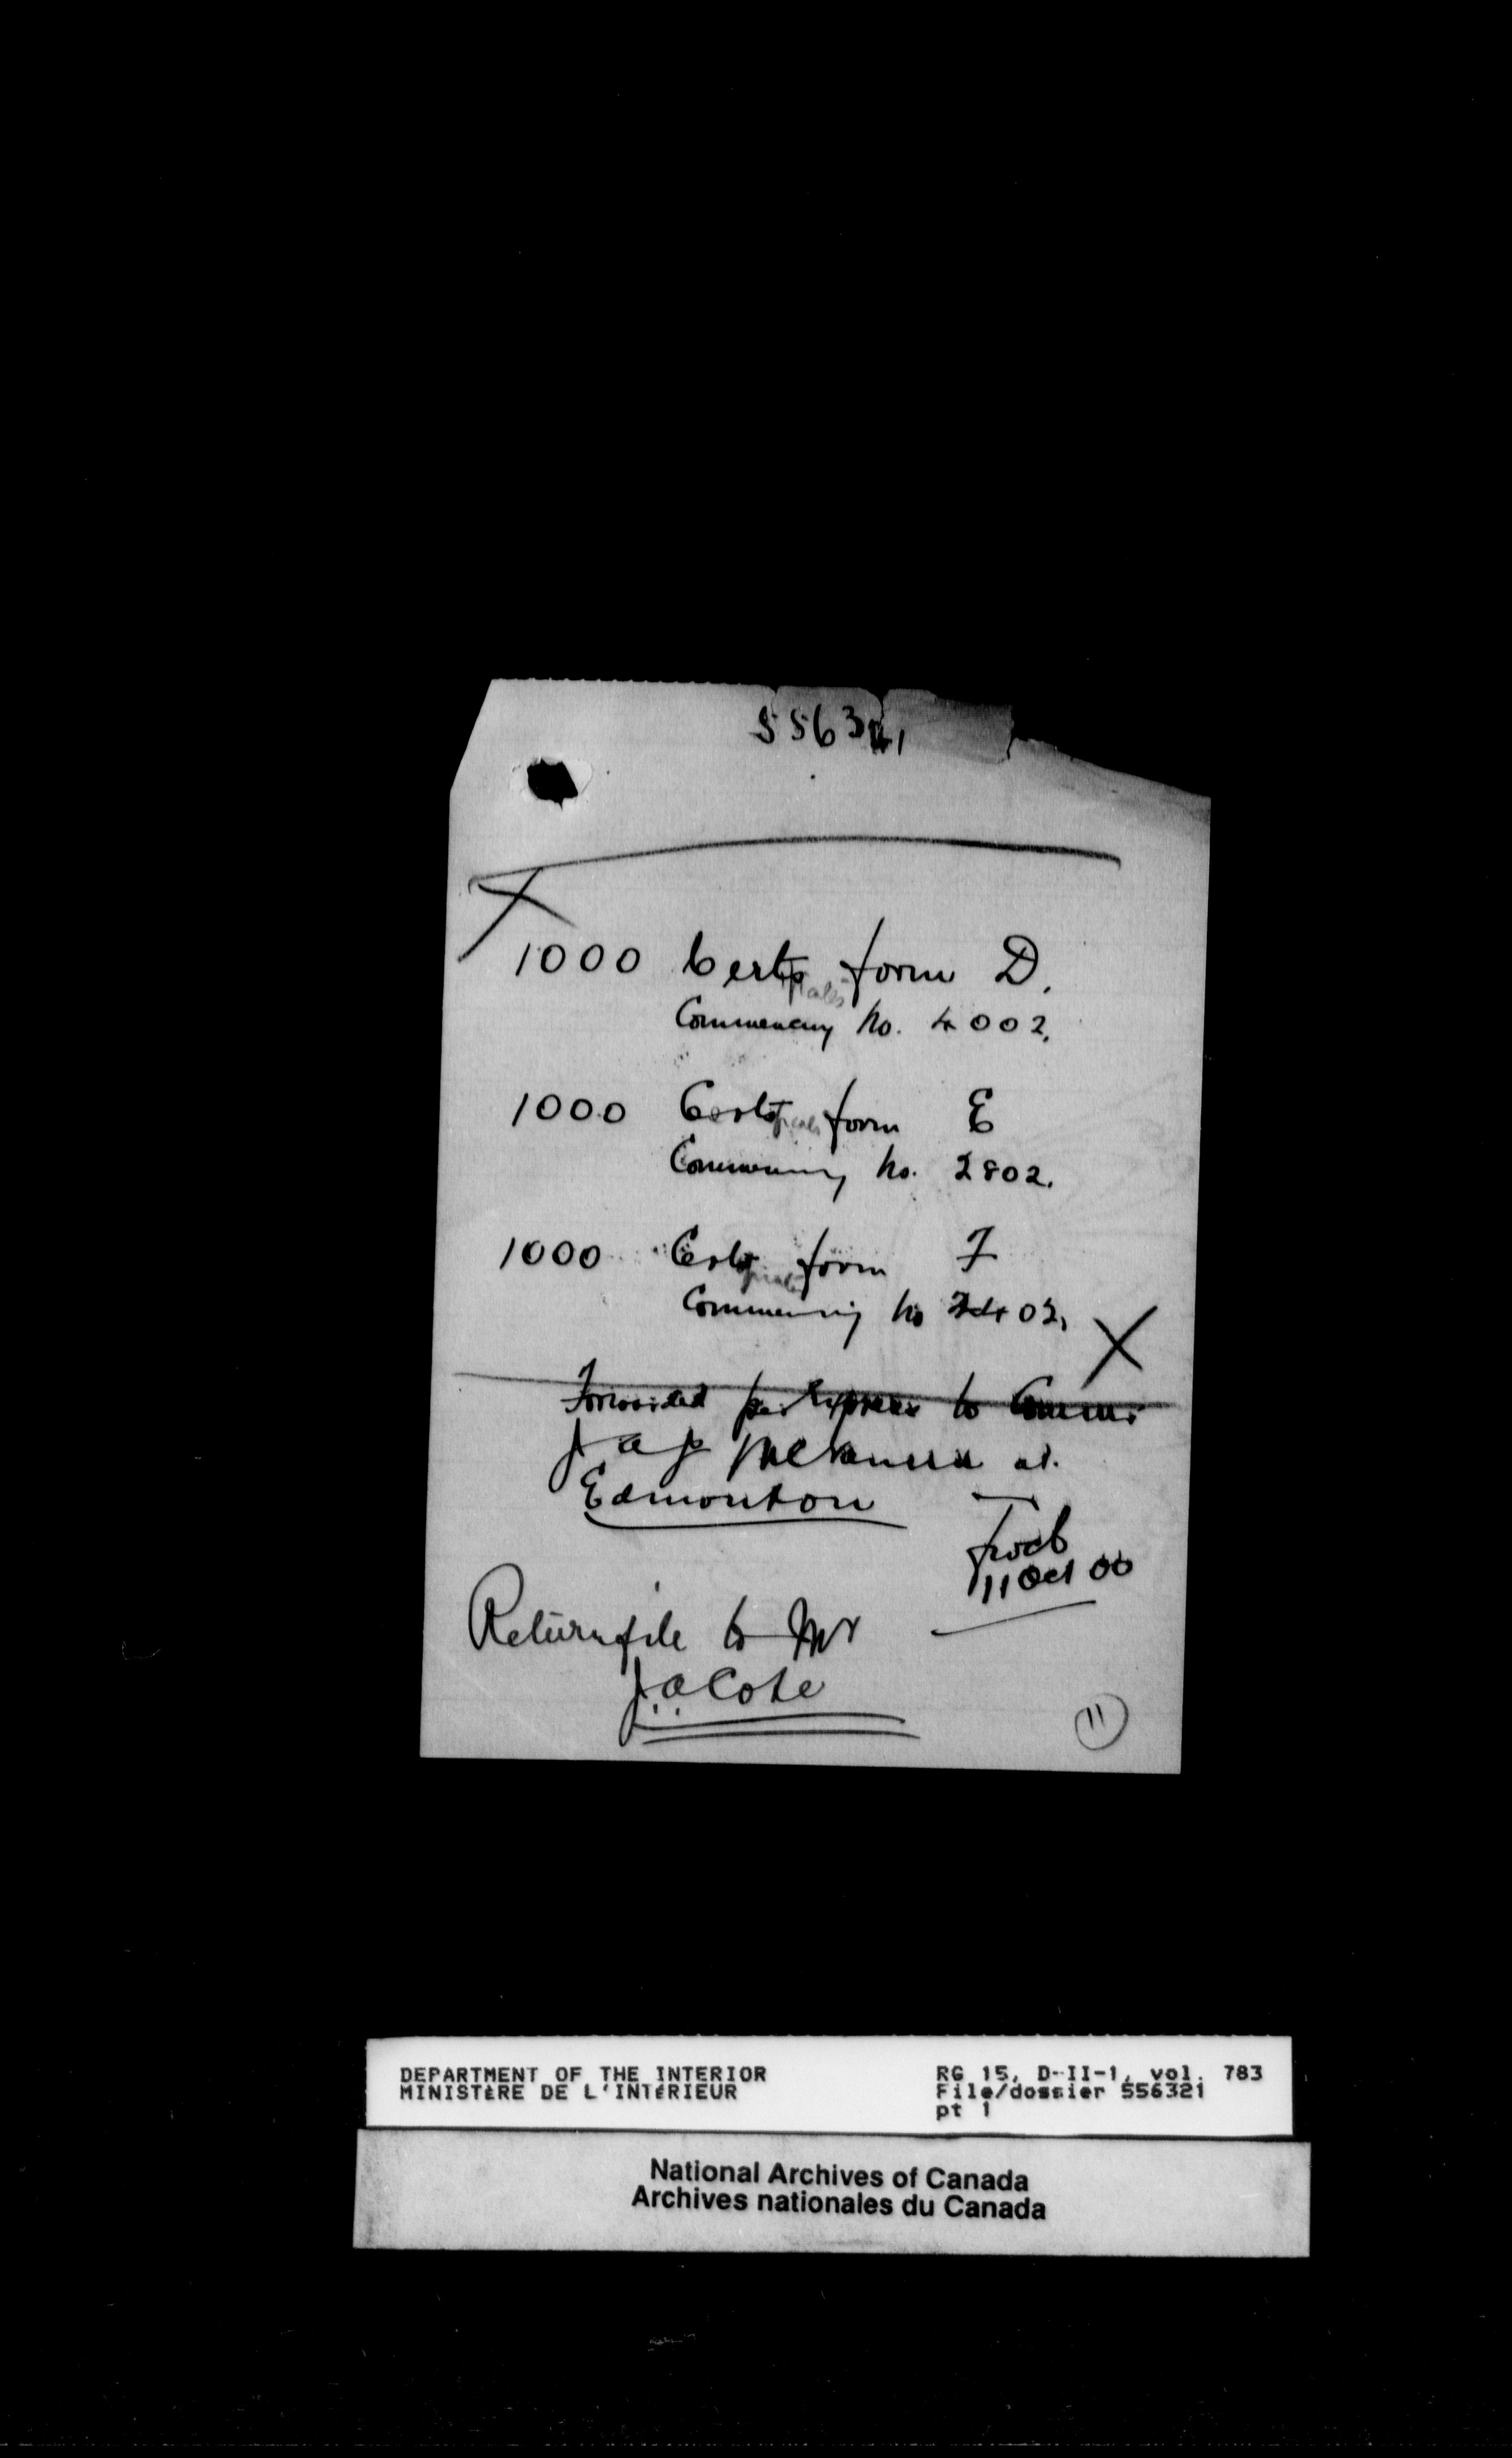 556321
1000 Certs form D.
ificates
Commencing No. 4002.
1000 Certs form E
ificates
Commencing No. 2802.
1000 Certs form F
ificates
Commencing No 2402,
Forwarded per Express to Commr
J A J McKenna at.
Edmonton
11 Oct 00
Return file to Mr
J. A. Cote
11
DEPARTMENT OF THE INTERIOR
MINISTÈRE DE L'INTÉRIEUR
RG 15, D-II-1, vol. 783
File/dossier 556321
pt 1
National Archives of Canada
Archives nationales du Canada